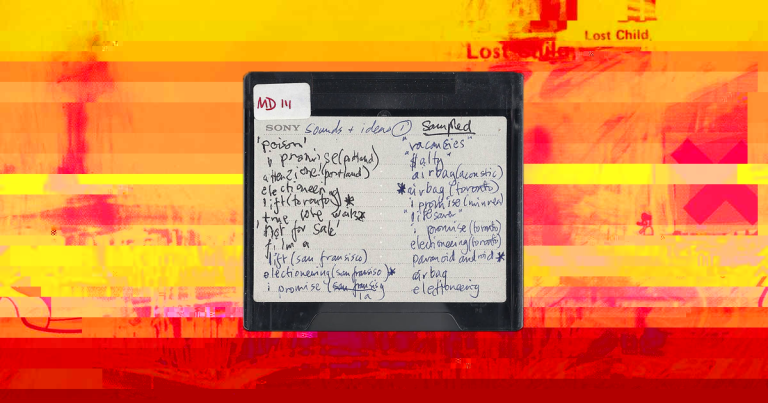 Lost Child.
Lost Child.
MD 111
SONY sounds + ideas ① Sampled
'poison'
i promise (portland)
(portland)
electioneering
lift (toronto) *
'true love waits *
'not for sale'
film a
lift (san francisco)
electioneering (san francisco) *
i promise (san francisco)
la
"vacancies"
airbag (acoustic)
* airbag (toronto)
i promise
"lifesaver"
i promise (toronto)
electioneering (toronto)
paranoid android *
airbag
electioneering